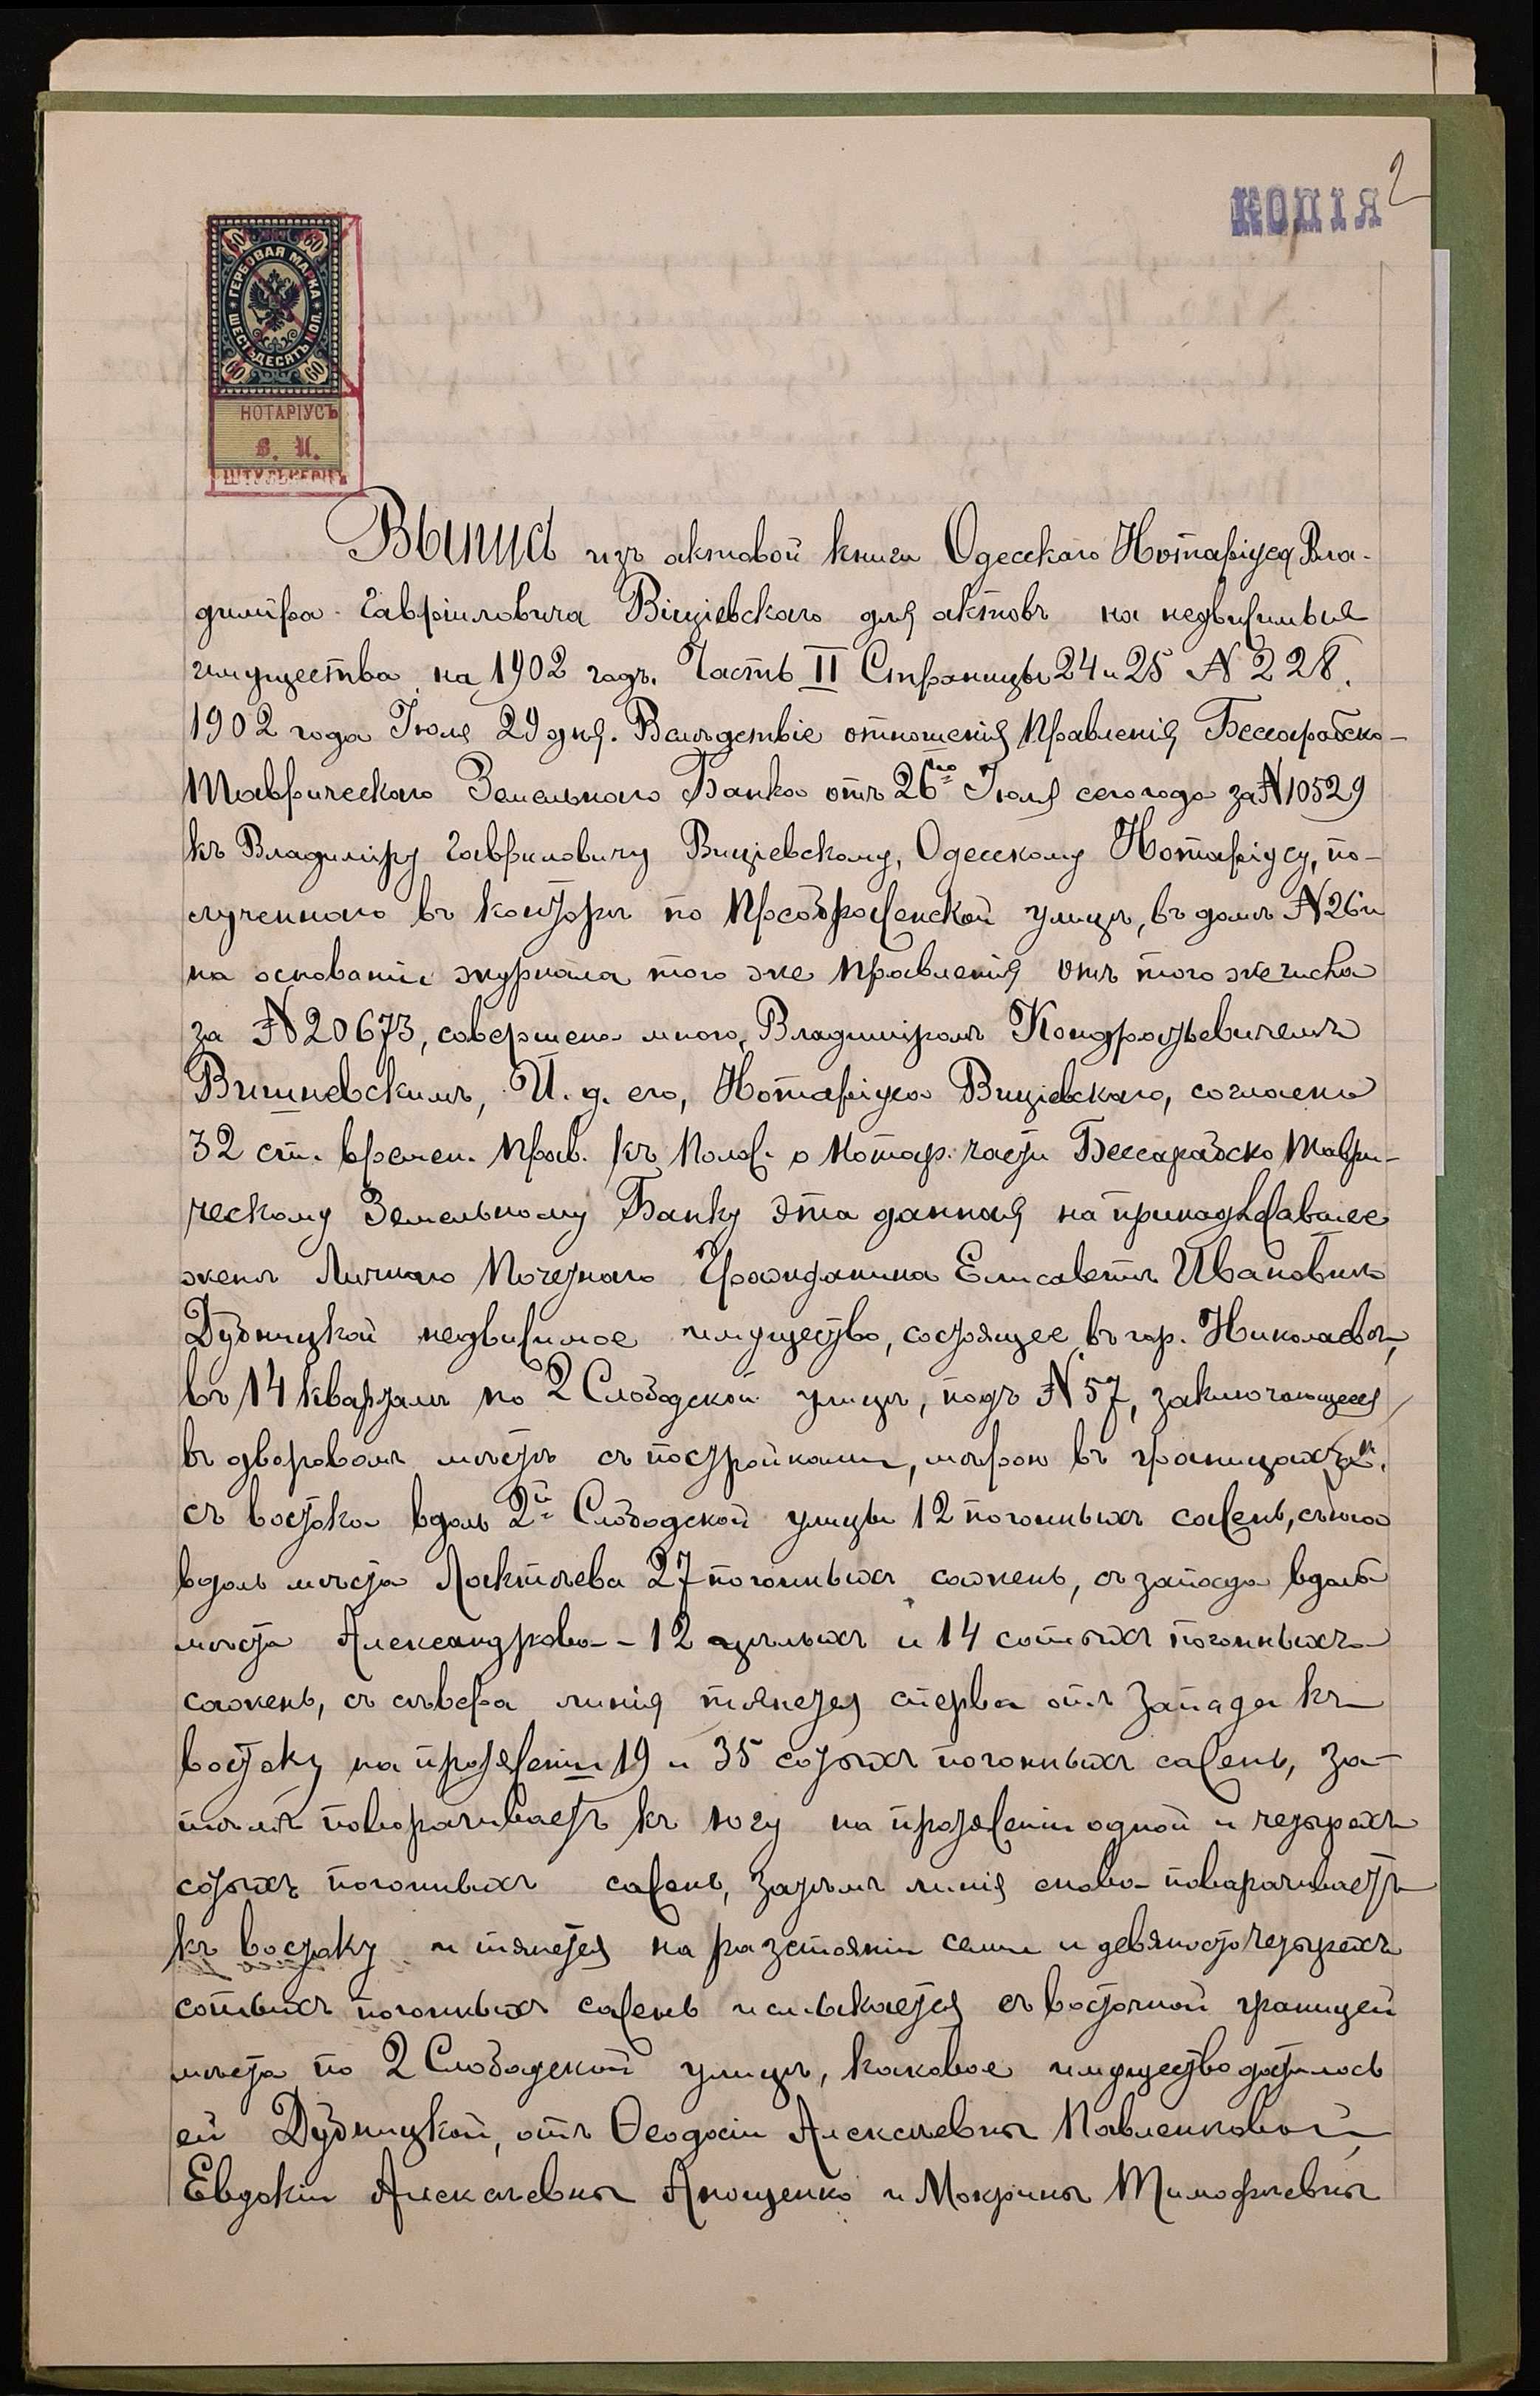 2
КОПІЯ
60 60
ГЕРБОВАЯ МАРКА
ШЕСТЬДЕСЯТЪ КОП.
60 60
НОТАРІУСЪ
В. И.
Выпись изъ актовой книги Одесскаго Нотаріуса Вла-
диміра Гавріиловича Виціевскаго для актовъ на недвижимыя
имущества на 1902 годъ. Часть II Страницы 24 и 25 № 228.
1902 года Іюля 29 дня. Вслѣдствіе отношенія Правленія Бессарабско-
Таврическаго Земельнаго Банка отъ 26го Іюля сего года за № 10529
къ Владиміру Гавриловичу Вициевскому, Одесскому Нотаріусу, по-
лученнаго въ конторѣ по Преображенской улицѣ, въ домѣ № 26 и
на основаніи журнала того же Правленія отъ того же числа
за № 20673, совершена мною, Владиміромъ Кондратьевичемъ
Вишневскимъ, И. д. его, Нотаріуса Вициевскаго, согласно
32 ст. времен. прав. къ Полож. о Нотар. части Бессарабско Таври-
ческому Земельному Банку эта данная на принадлежавшее
женѣ Личнаго Почетнаго Гражданина Елисаветѣ Ивановнѣ
Дубницкой недвижимое имущество, состоящее въ гор. Николаевѣ,
въ 14 кварталѣ по 2 Слободской улицѣ, подъ № 57, заключающееся
въ дворовомъ мѣстѣ съ постройками, мѣрою въ границахъ:
съ востока вдоль 2й Слободской улицы 12 погонныхъ сажень, съ юга
вдоль мѣста Лактіева 27 погонныхъ сажень, съ запада вдоль
мѣста Александрова - 12 цѣлыхъ и 14 сотыхъ погонныхъ
сажень, съ сѣвера линія тянется сперва отъ запада къ
востоку на протяженіи 19 и 35 сотыхъ погонныхъ сажень, за-
тѣмъ поворачиваетъ къ югу на протяженіи одной и четырехъ
сотыхъ погонныхъ сажень, затѣмъ линія снова поварачиваетъ
къ востоку и тянется на разстояніи семи и девяносто четырехъ
сотыхъ погонныхъ сажень и смыкается съ восточной границей
мѣста по 2 Слободской улицѣ, каковое имущество досталось
ей Дубницкой, отъ Ѳеодосіи Алексѣевны Павленковой,
Евдокіи Алексѣевны Анощенко и Мокрины Тимофѣевны